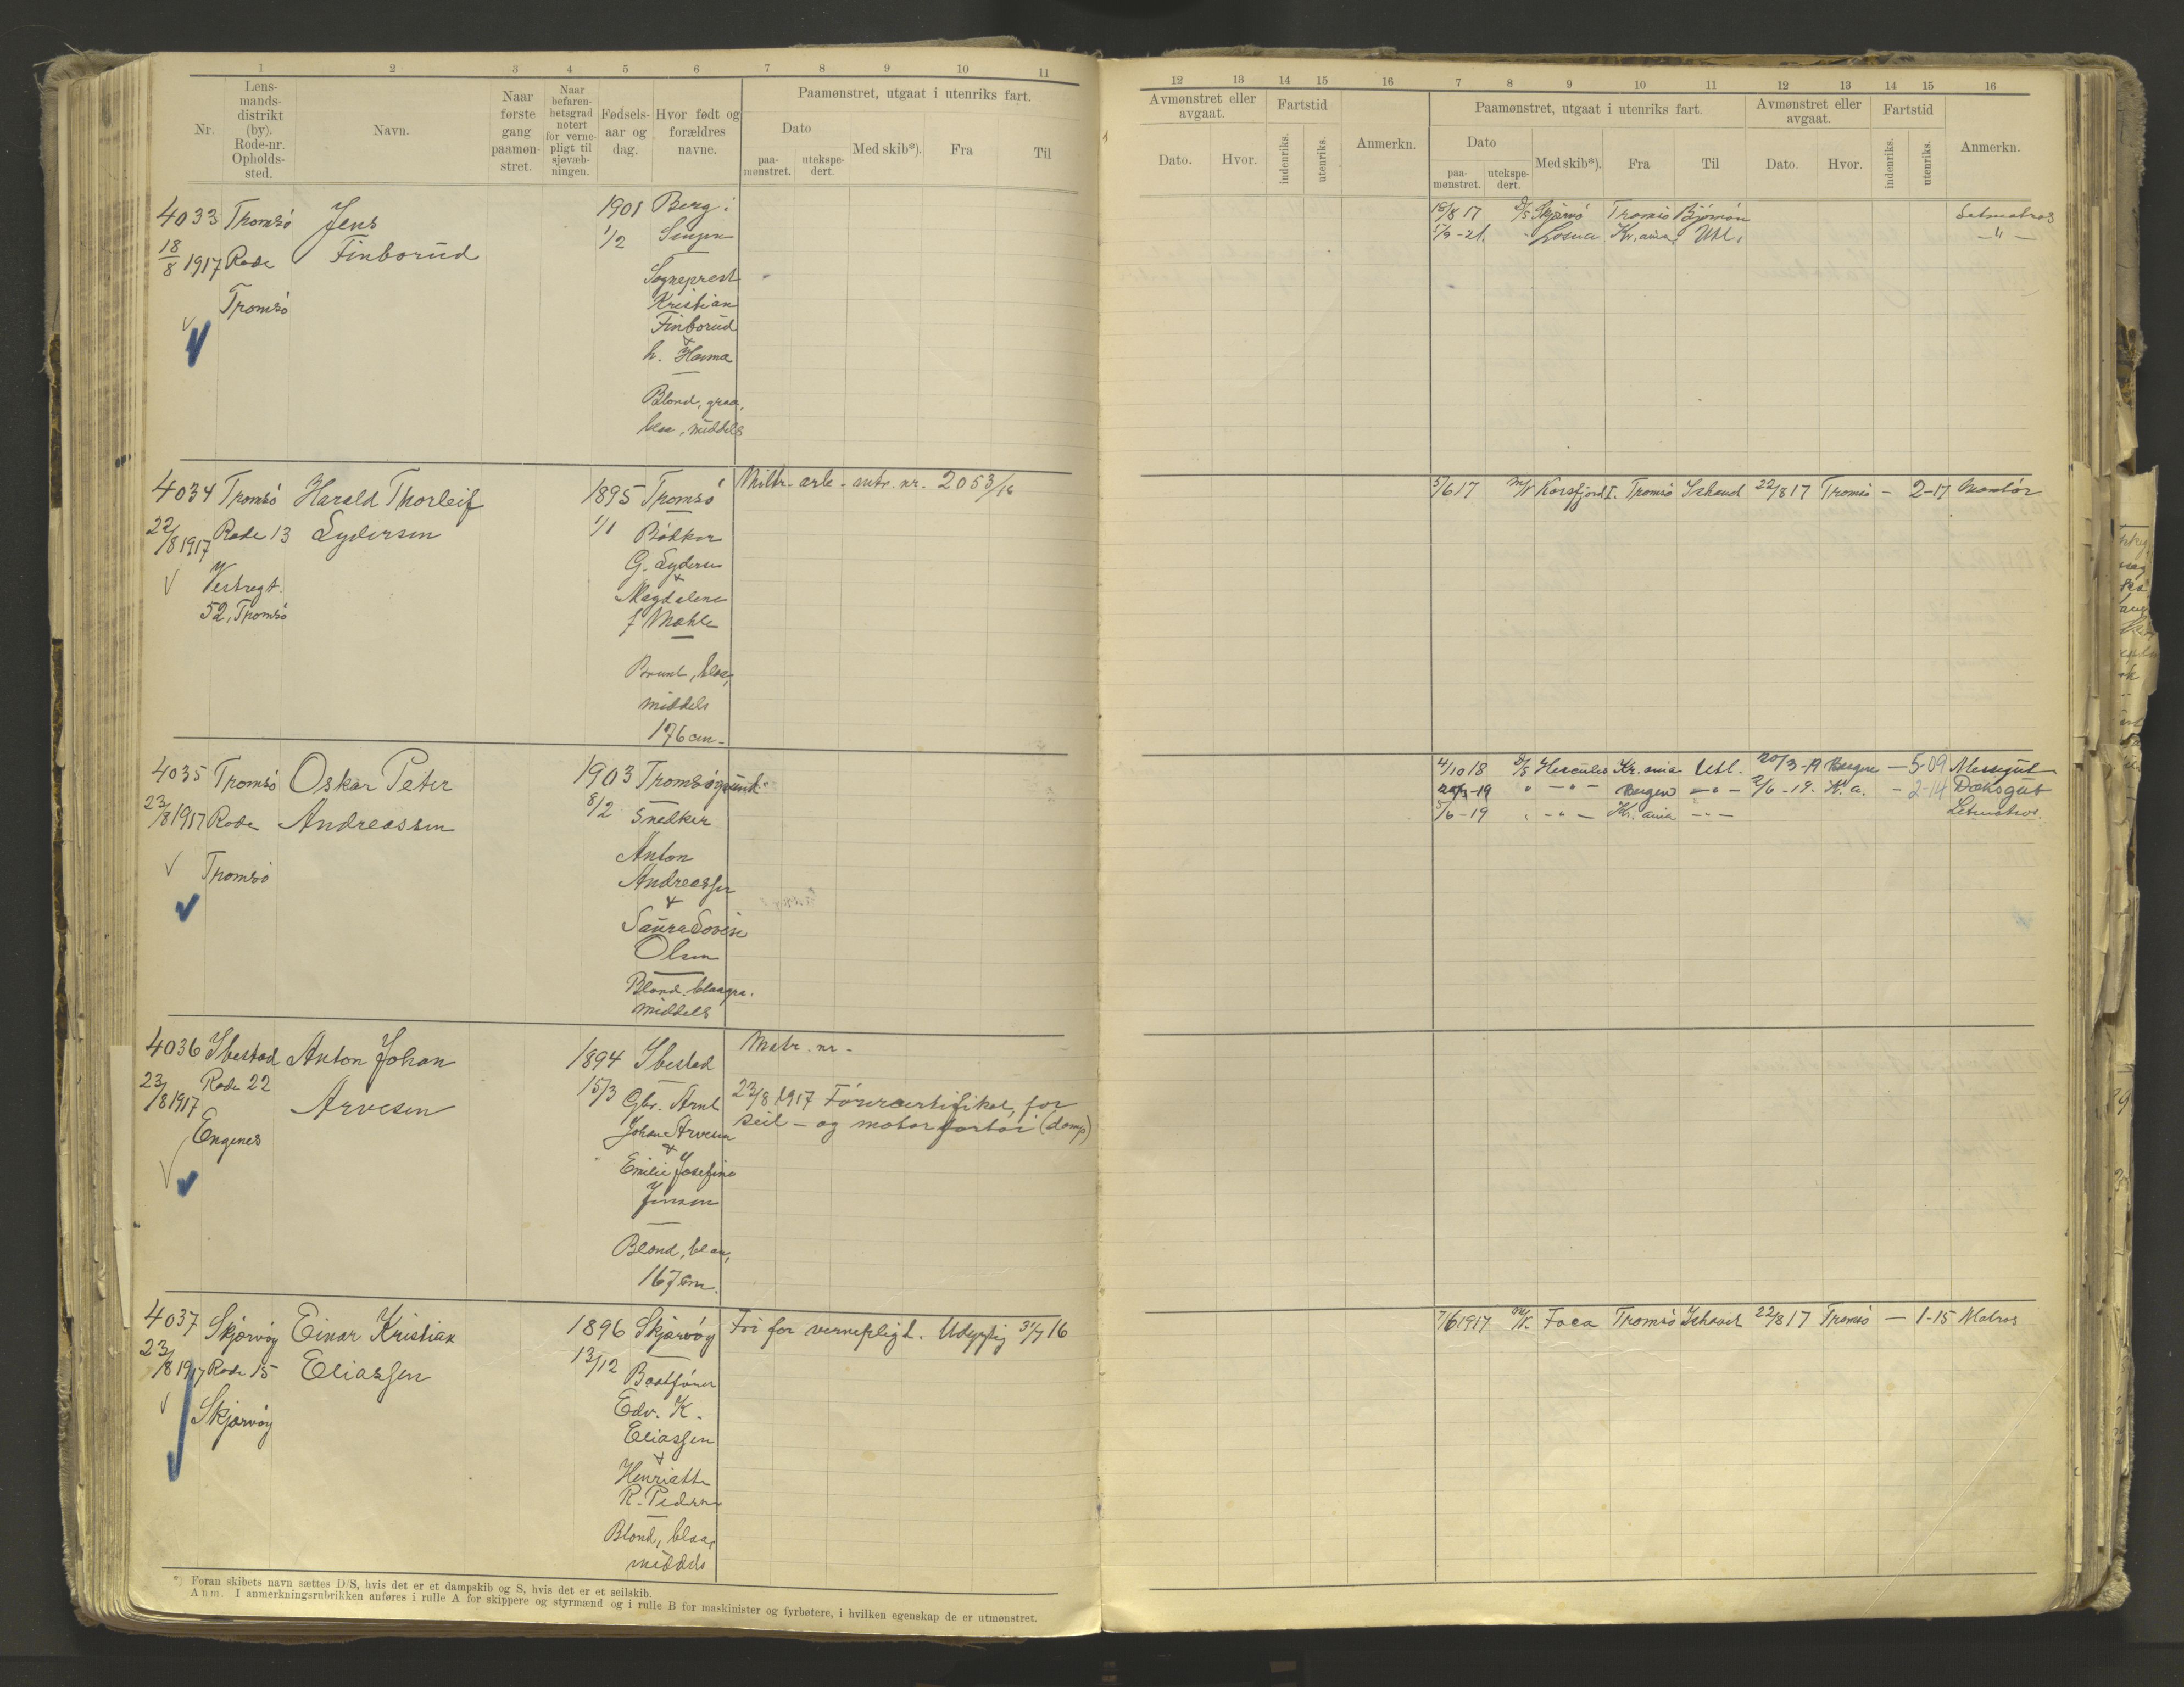 1 2 3 4 5 6 7 8 9 10 11
Nr.
Lens-
mands-
distrikt
(by).
Rode-nr.
Opholds-
sted.
Navn.
Naar
første
gang
paamøn-
stret.
Naar
befaren-
betsgrad
notert
for verne-
pligt til
sjøvæb-
ningen.
Fødsels-
aar og
dag.
Hvor født og
forældres
navne.
Paamønstret, utgaat i utenriks fart.
Dato
paa-
mønstret.
utekspe-
dert.
Med skib*).
Fra
Til
12 13 14 15 16 7 8 9 10 11 12 13 14 15 16
Avmønstret eller
avgaat.
Dato.
Hvor.
Fartstid
indenriks.
utenriks.
Anmerkn.
Paamønstret, utgaat i utenriks fart.
Dato
paa-
mønstret.
utekspe-
dert.
Med skib*).
Fra
Til
Avmønstret eller
avgaat.
Dato.
Hvor.
Fartstid
indenriks.
utenriks.
Anmerkn.
4033 Tromsö Jens 1901 Berg i
18/8 1917 Rode Finborud 1/2 Senjen
Tromsö
Sogneprest
Kristian
Finborud
&
h. Hanna
Blond, graa,
blaa, middels
18/8 17 D/S Skjervö Tromsö Björnön Letmatros
5/9-21. " Losna Kr.ania Utl. - " -
4034 Tromsö Harald Thorleif 1895 Tromsö
22/8 1917 Rode 13 Lydersen 1/1 Bödker
Vestregt.
52, Tromsö
G. Lydersen
&
Magdalena
f Mæhle
Brunt, blaa,
middels
176 cm.
Miltr. arb. mtr. nr. 2053/16
5/6 17 M/K Korsfjord I. Tromsö Ishavet 22/8 17 Tromsö - 2-17
4035 Tromsö Oskar Peter 1903 Tromsösund
23/8 1917 Rode Andreassen 8/2 Snedker
Tromsö
Anton
Andreassen
&
Laura Lovise
Olsen
Blond, blaagra.
middels
4/10 18 D/S Hercules Kr.ania Utl. 20/3-19 Bergen - 5-09 Messegut
20/3-19 " - " - Bergen - " - 2/6-19. K.a. - 2-14 Dæksgut
5/6-19 " - " - Kr.ania - " - Letmatros.
4036 Ibestad Anton Johan 1894 Ibestad
23/8 1917 Rode 22 Arvesen 15/3 Gbr. Arnt
Engenes
Johan Arvesen
&
Emilie Josefine
Jensen
Blond, blaa,
167 cm.
Matr. nr.
23/8 1917 Förercertifikat, for
seil- og motorfartöi (damp)
4037 Skjærvöy Einar Kristian 1896 Skjærvöy
23/8 1917 Rode 15 Eliassen 13/12 Baatförer
Skjærvöy
Edv. K.
Eliassen
&
Henriette
R. Pedersen
Blond, blaa,
middels
Fri for vernepligt. Udygtig 31/7 16
7/6 1917 M/K Foca Tromsö Ishavet 22/8 17 Tromsö - 1-15 Matros
*) Foran skibets navn sættes D/S, hvis det er et dampskib og S, hvis det er et seilskib.
Anm. I anmerkningsrubrikken anføres i rulle A for skippere og styrmænd og i rulle B for maskinister og fyrbøtere, i hvilken egenskap de er utmønstret.